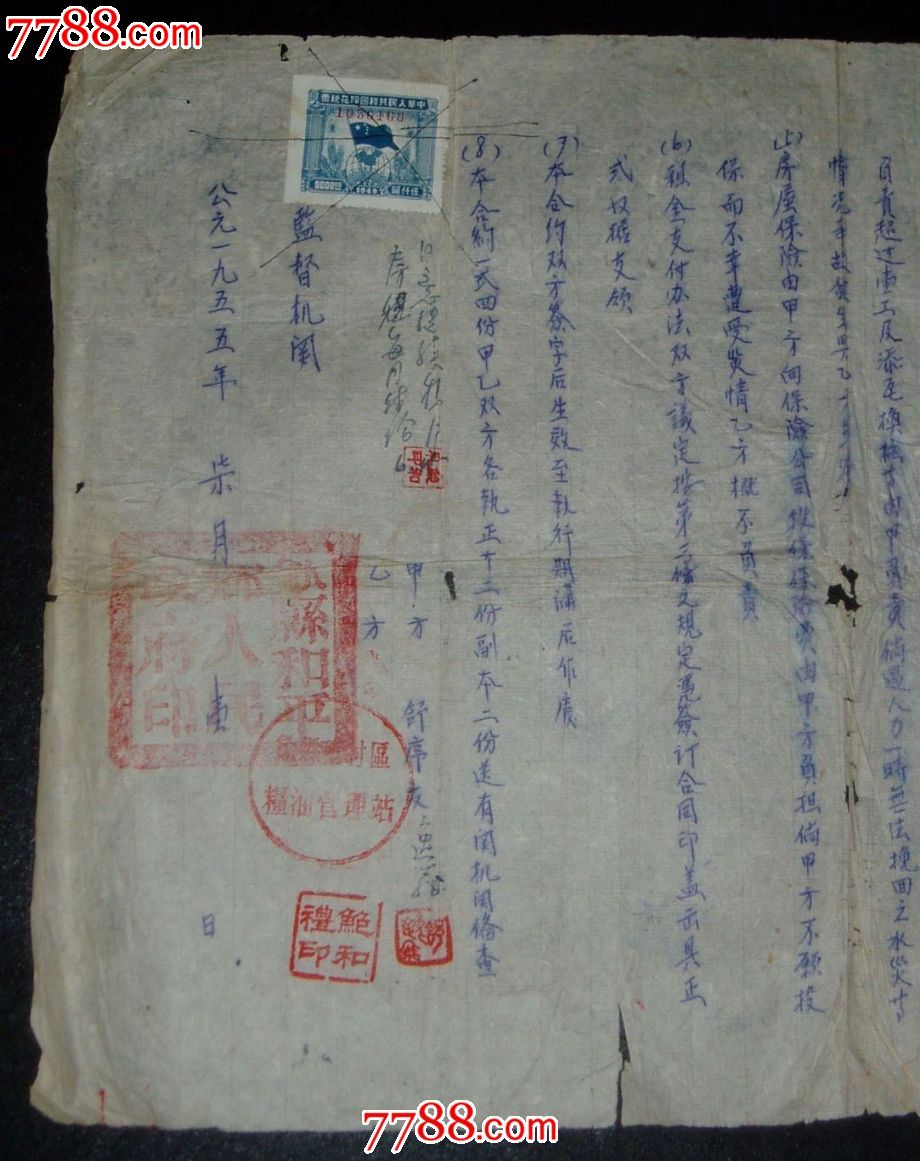 7788.com
7788.com
負責超过重工及添瓦換
由甲負責倘遇人力一時無法挽回之水災等
情況
(5)房屋保險由甲方向保險公司投保保險費由甲方負担倘甲方不願投
保而不幸遭受災情乙方概不負責
(6)租金支付办法双方議定按第二條之規定憑簽订合同印盖出具正
式收据支領
(7)本合約双方簽字后生效至执行期满后作废
(8)本合約一式四份甲乙双方各执正本二份副本二份送有関机関俻查
中華人民共和國印花稅票
1036168
5000
1949
伍仟圓
房
每月
甲方 舒序友
乙方
監督机関
公元一九五五年 柒月 壹 日
縣和平
鄉人民
政府印
村區
糧油管理站
鮑和
禮印
7788.com
7788.com